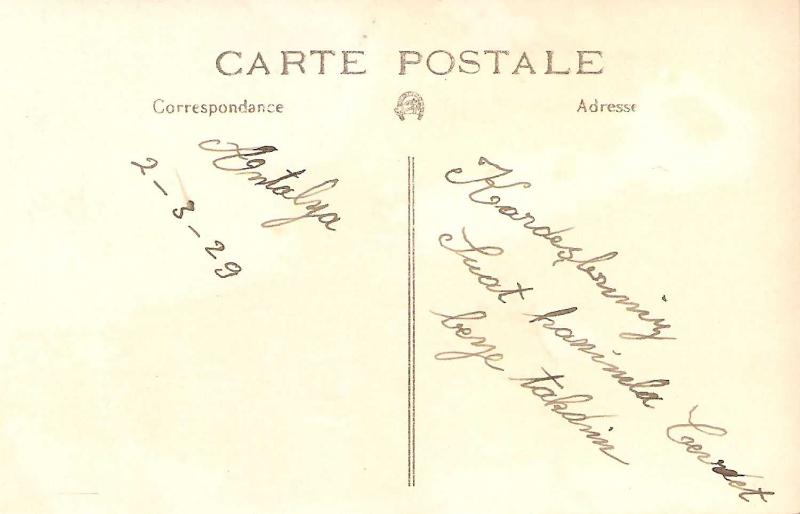 CARTE POSTALE
Correspondance
Adresse
Antalya
2-3-29
Kardeşlarımız
Suat hanimla Cevdet
beye takdim